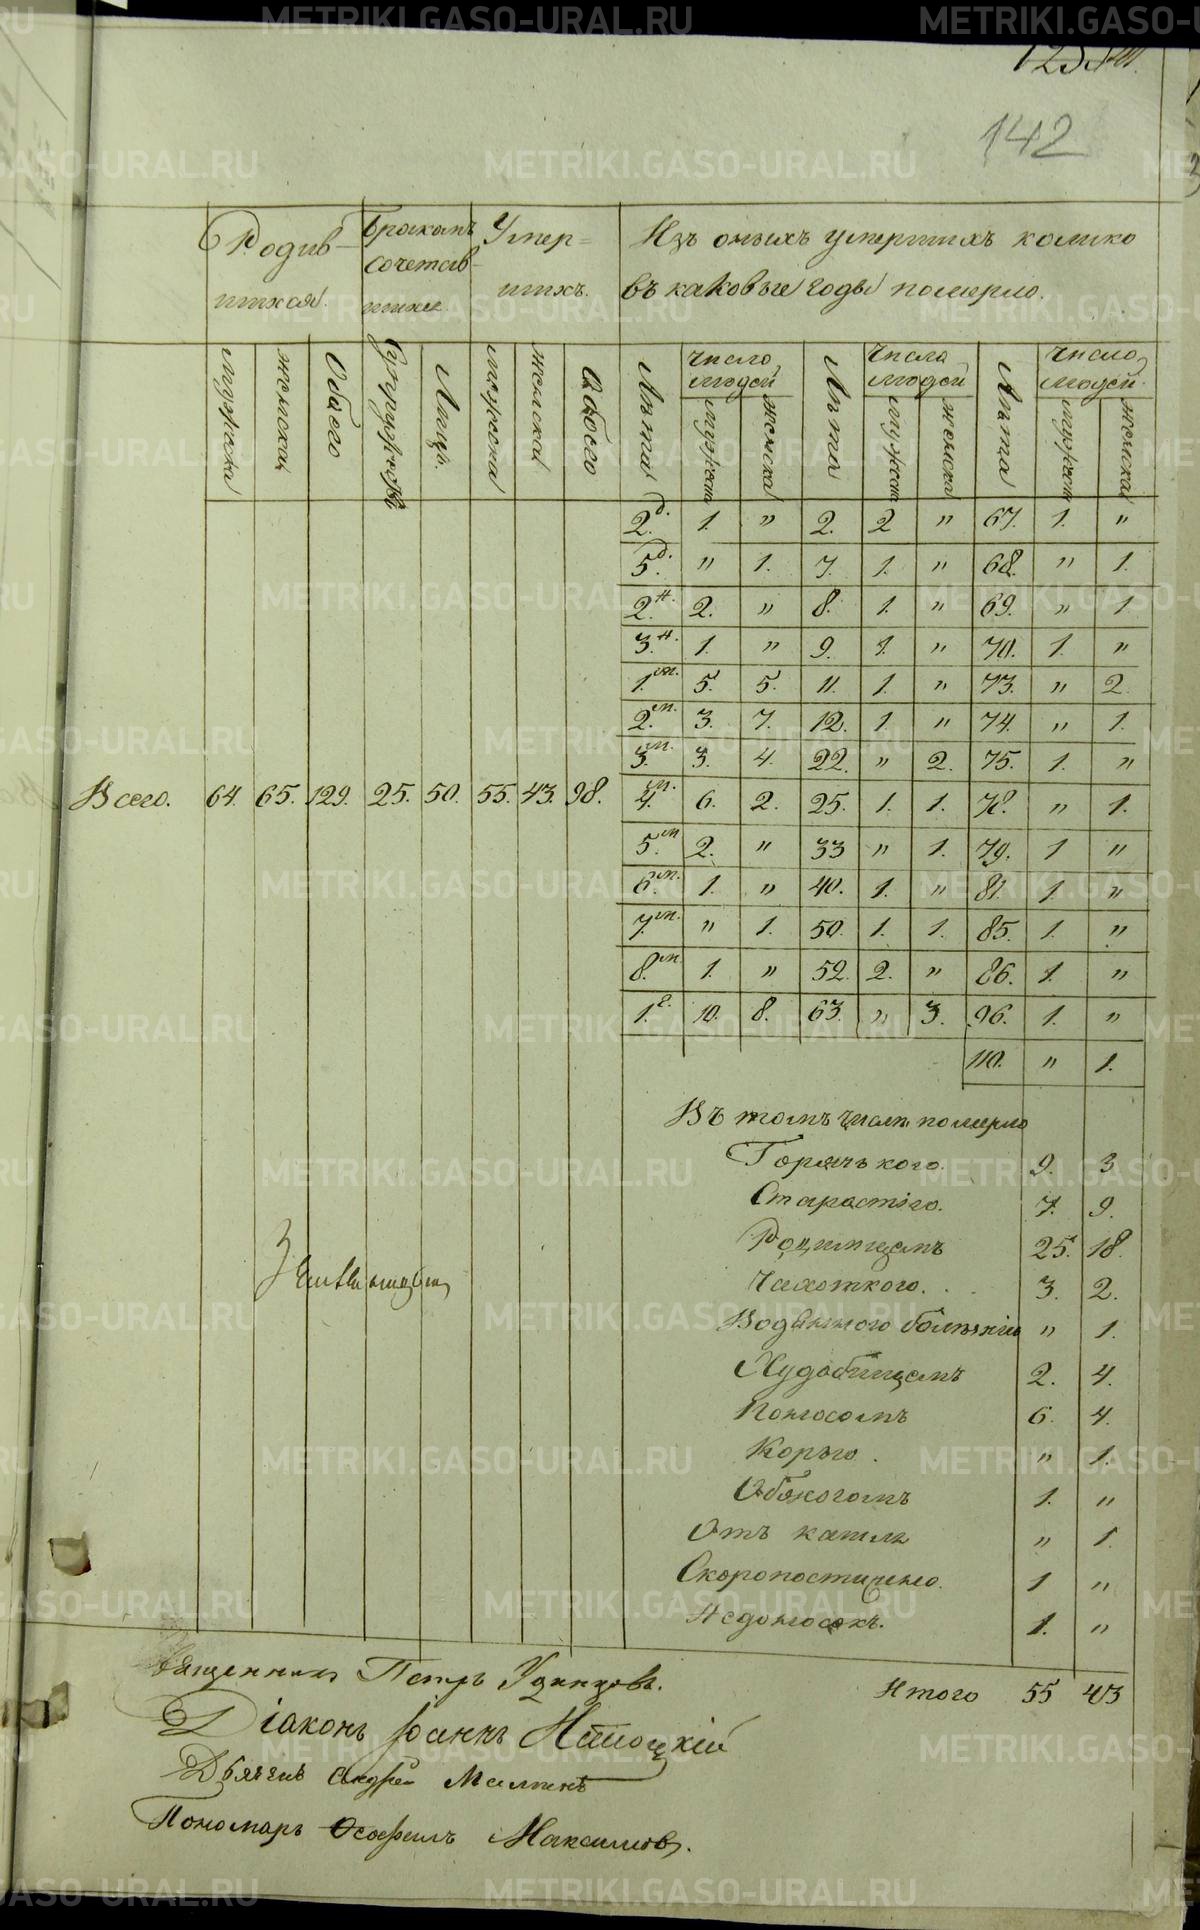 142
Родив- Бракомъ Умер- Изъ оныхъ умершихъ колико
шихся. сочетав- шихъ. въ каковые годы померло.
шихся
мужеска женска Обоего Супружествъ Лицъ мужеска женска Обоего Лѣта Число людей Лѣта Числа людей Лѣта Число людей
мужеск женска мужеск женска мужеск женска
2.д. 1. " 2. 2 " 67. 1. "
5.д. " 1. 7. 1. " 68. " 1.
2.н. 2. " 8. 1. " 69. " 1
3.н. 1. " 9. 1. " 70. 1. "
1.м. 5. 5. 11. 1. " 73. " 2
2.м. 3. 7. 12. 1. " 74. " 1.
3.м. 3. 4. 22. " 2. 75. 1. "
Всего. 64. 65. 129. 25. 50. 55. 43. 98. 4.м. 6. 2. 25. 1. 1. 78. " 1.
5.м 2. " 33 " 1. 79. 1 "
6.м. 1. " 40. 1. " 81. 1. "
7.м. " 1. 50. 1. 1. 85. 1. "
8.м 1. " 52. 2. " 86. 1. "
1.г. 10. 8. 63. " 3. 96. 1. "
110. " 1.
Въ томъ числѣ померло
Горячкою. 9. 3
Старостію. 7. 9.
Родимцемъ 25. 18.
Чахоткою. . . 3. 2.
Водяною болѣзнію " 1.
Худобищемъ 2. 4.
Поносомъ 6. 4.
Корью . " 1.
Обжогомъ 1. "
Отъ кашля " 1.
Скоропостижно. 1 "
Недоносокъ. 1. "
Итого 55 43
Священникъ Петръ Удинцовъ.
Діаконъ Іоаннъ
Дьячекъ Андрей
Пономарь Ѳеофилъ Максимовъ.
METRIKI.GASO-URAL.RU